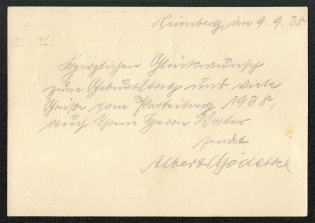 Nürnberg den 9. 9. 38
Herzlichen Glückwunsch
zum Geburtstag und viele
Grüße vom Parteitag 1938,
auch Ihrem Herrn Vater
sendet
Albert Gödecke